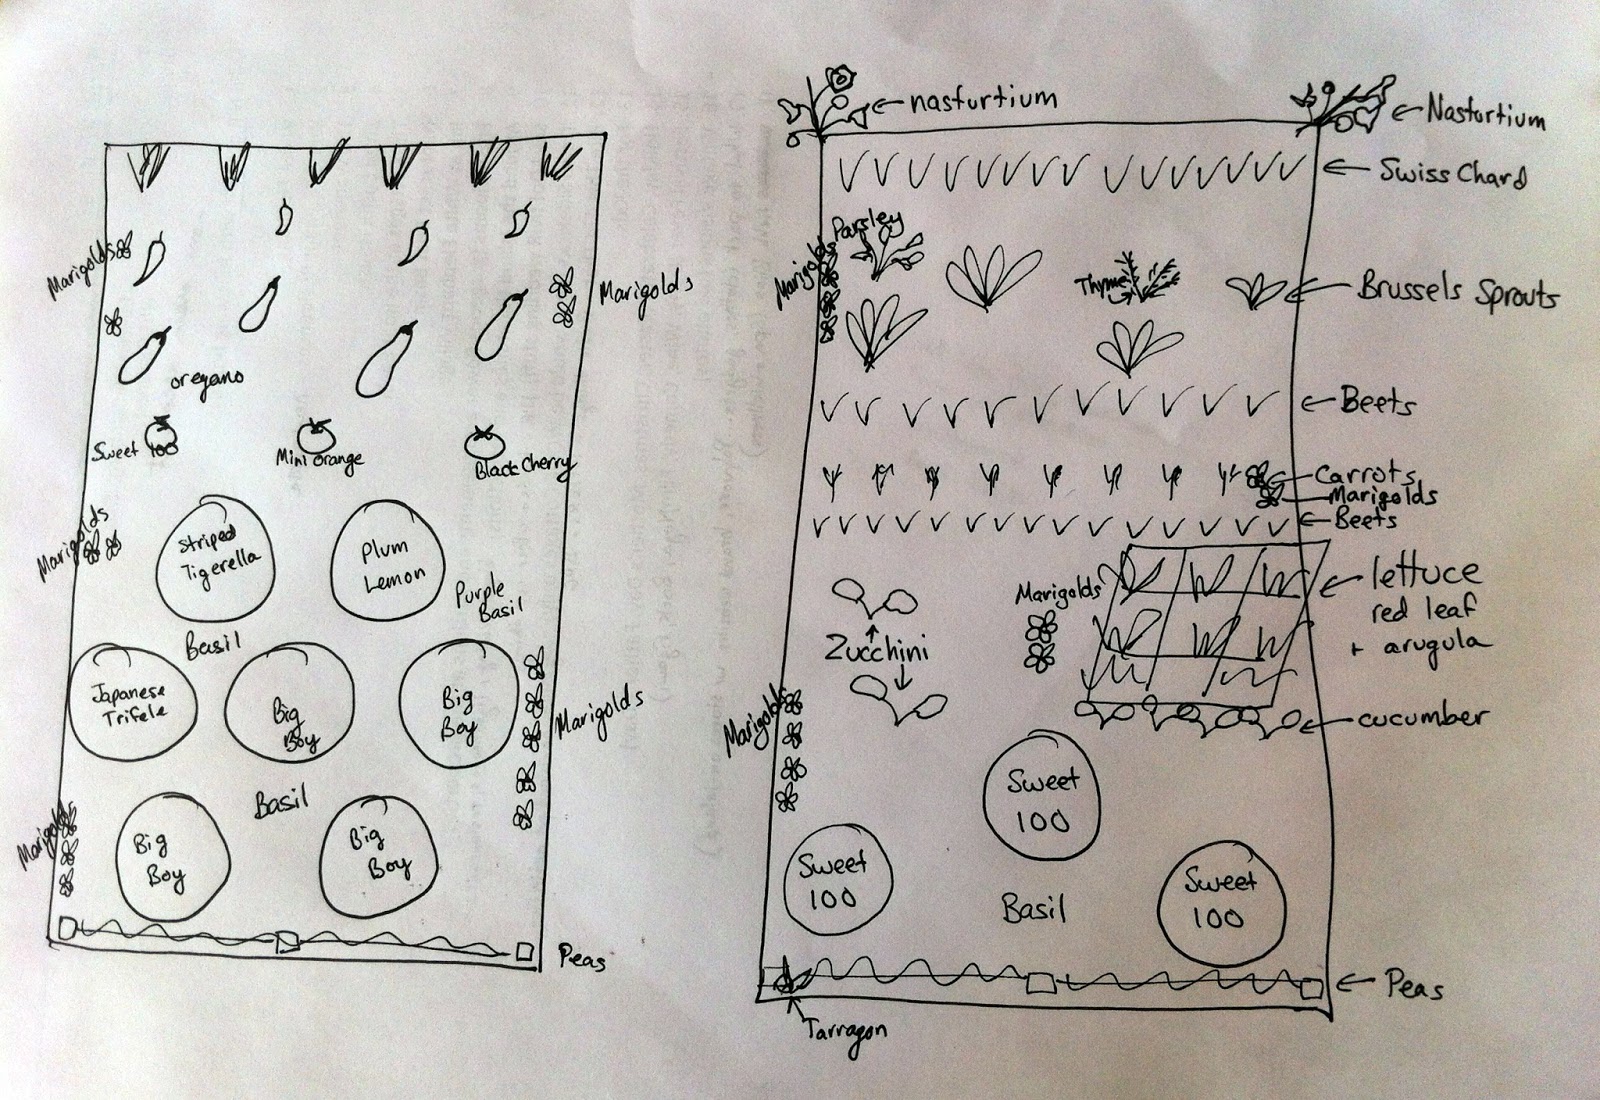 Marigolds
Marigolds
oregano
Sweet 100
Mini Orange
Black Cherry
Marigolds
Striped
Tigerella
Plum
Lemon
Purple
Basil
Basil
Japanese
Trifele
Big
Boy
Big
Boy
Marigolds
Basil
Marigolds
Big
Boy
Big
Boy
Peas
nasturtium
Nasturtium
Swiss Chard
Parsley
Marigolds
Thyme
Brussels Sprouts
Beets
Carrots
Marigolds
Beets
Marigolds
lettuce
red leaf
+ arugula
Zucchini
Marigolds
cucumber
Sweet
100
Sweet
100
Sweet
100
Basil
Peas
Tarragon